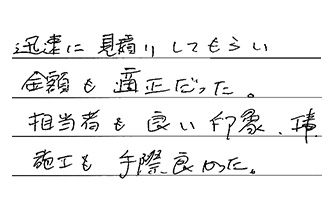 迅速に見積りしてもらい
金額も適正だった。
担当者も良い印象、
施工も手際良かった。